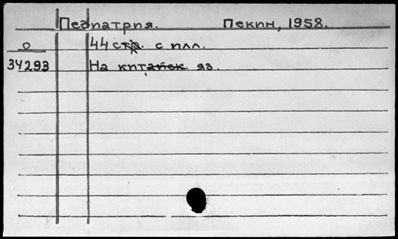 Педиатрия. Пекин, 1958.
О 44 стр. с илл.
34293 На китайск. яз.